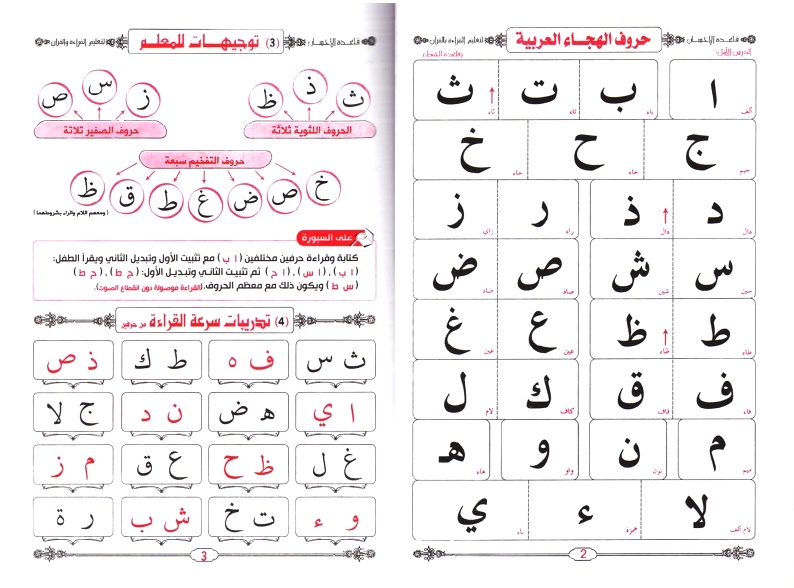 قاعدة الإحسان
حروف الهجاء العربية
لتعليم القراءة والقرآن
الدرس الأول:
ا ب ت ث
ألف باء تاء ثاء
ج ح خ
جيم حاء خاء
د ذ ر ز
دال ذال راء زاي
س ش ص ض
سين شين صاد ضاد
ط ظ ع غ
طاء ظاء عين غين
ف ق ك ل
فاء قاف كاف لام
م ن و هـ
ميم نون واو هاء
لا ء ي
لام ألف همزة ياء
2
قاعدة الإحسان
(3) توجيهات للمعلم
لتعليم القراءة والقرآن
ث ذ ظ
الحروف اللثوية ثلاثة
ز س ص
حروف الصفير ثلاثة
حروف التفخيم سبعة
خ ص ض غ ط ق ظ
(ومعهم اللام والراء بشروطهما)
على السبورة
كتابة وقراءة حرفين مختلفين (ا ب) مع تثبيت الأول وتبديل الثاني ويقرأ الطفل:
(ا ب) ، (ا س) ، (ا ح) ثم تثبيت الثاني وتبديل الأول: (ح ط) ، (ج ط)
(س ط) ويكون ذلك مع معظم الحروف. (القراءة موصولة دون انقطاع الصوت).
(4) تدريبات سرعة القراءة من حرفين
ث س
ف ه
ط ك
ذ ص
ا ي
هـ ض
ن د
ج لا
غ ل
ظ ح
ع ق
م ز
و ء
ت خ
ش ب
ر ة
3